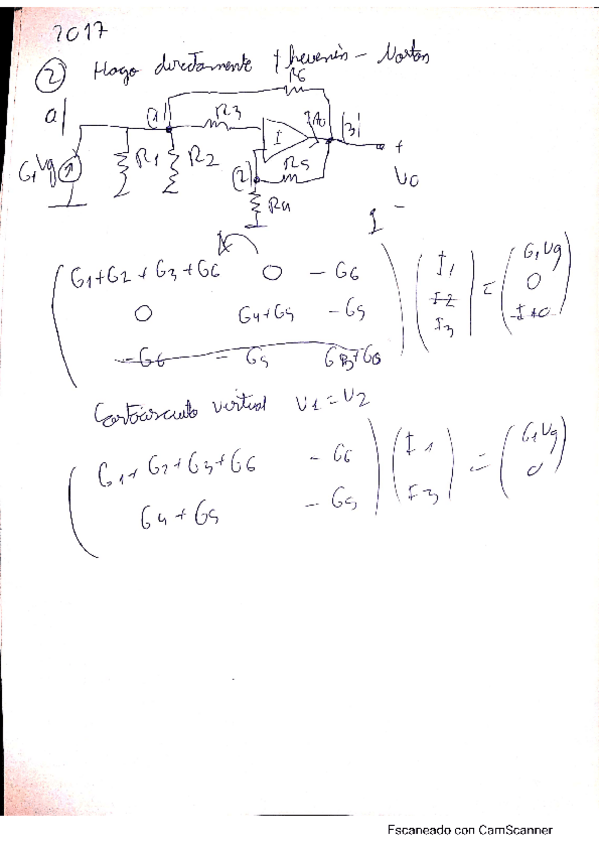 2017
② Hago directamente thevenin - Norton
a|
R6
(1)
R3
I
IAO
(3)
+
G1Vg
R1
R2
(2)
R5
V0
R4
-
I
G1+G2+G3+G6 0 -G6 I1 G1Vg
0 G4+G5 -G5 I2 = 0
-G6 -G5 I3
Cortocircuito virtual V1=V2
G1+G2+G3+G6 -G6 I1 = G1Vg
G4+G5 -G5 I3 0
Escaneado con CamScanner